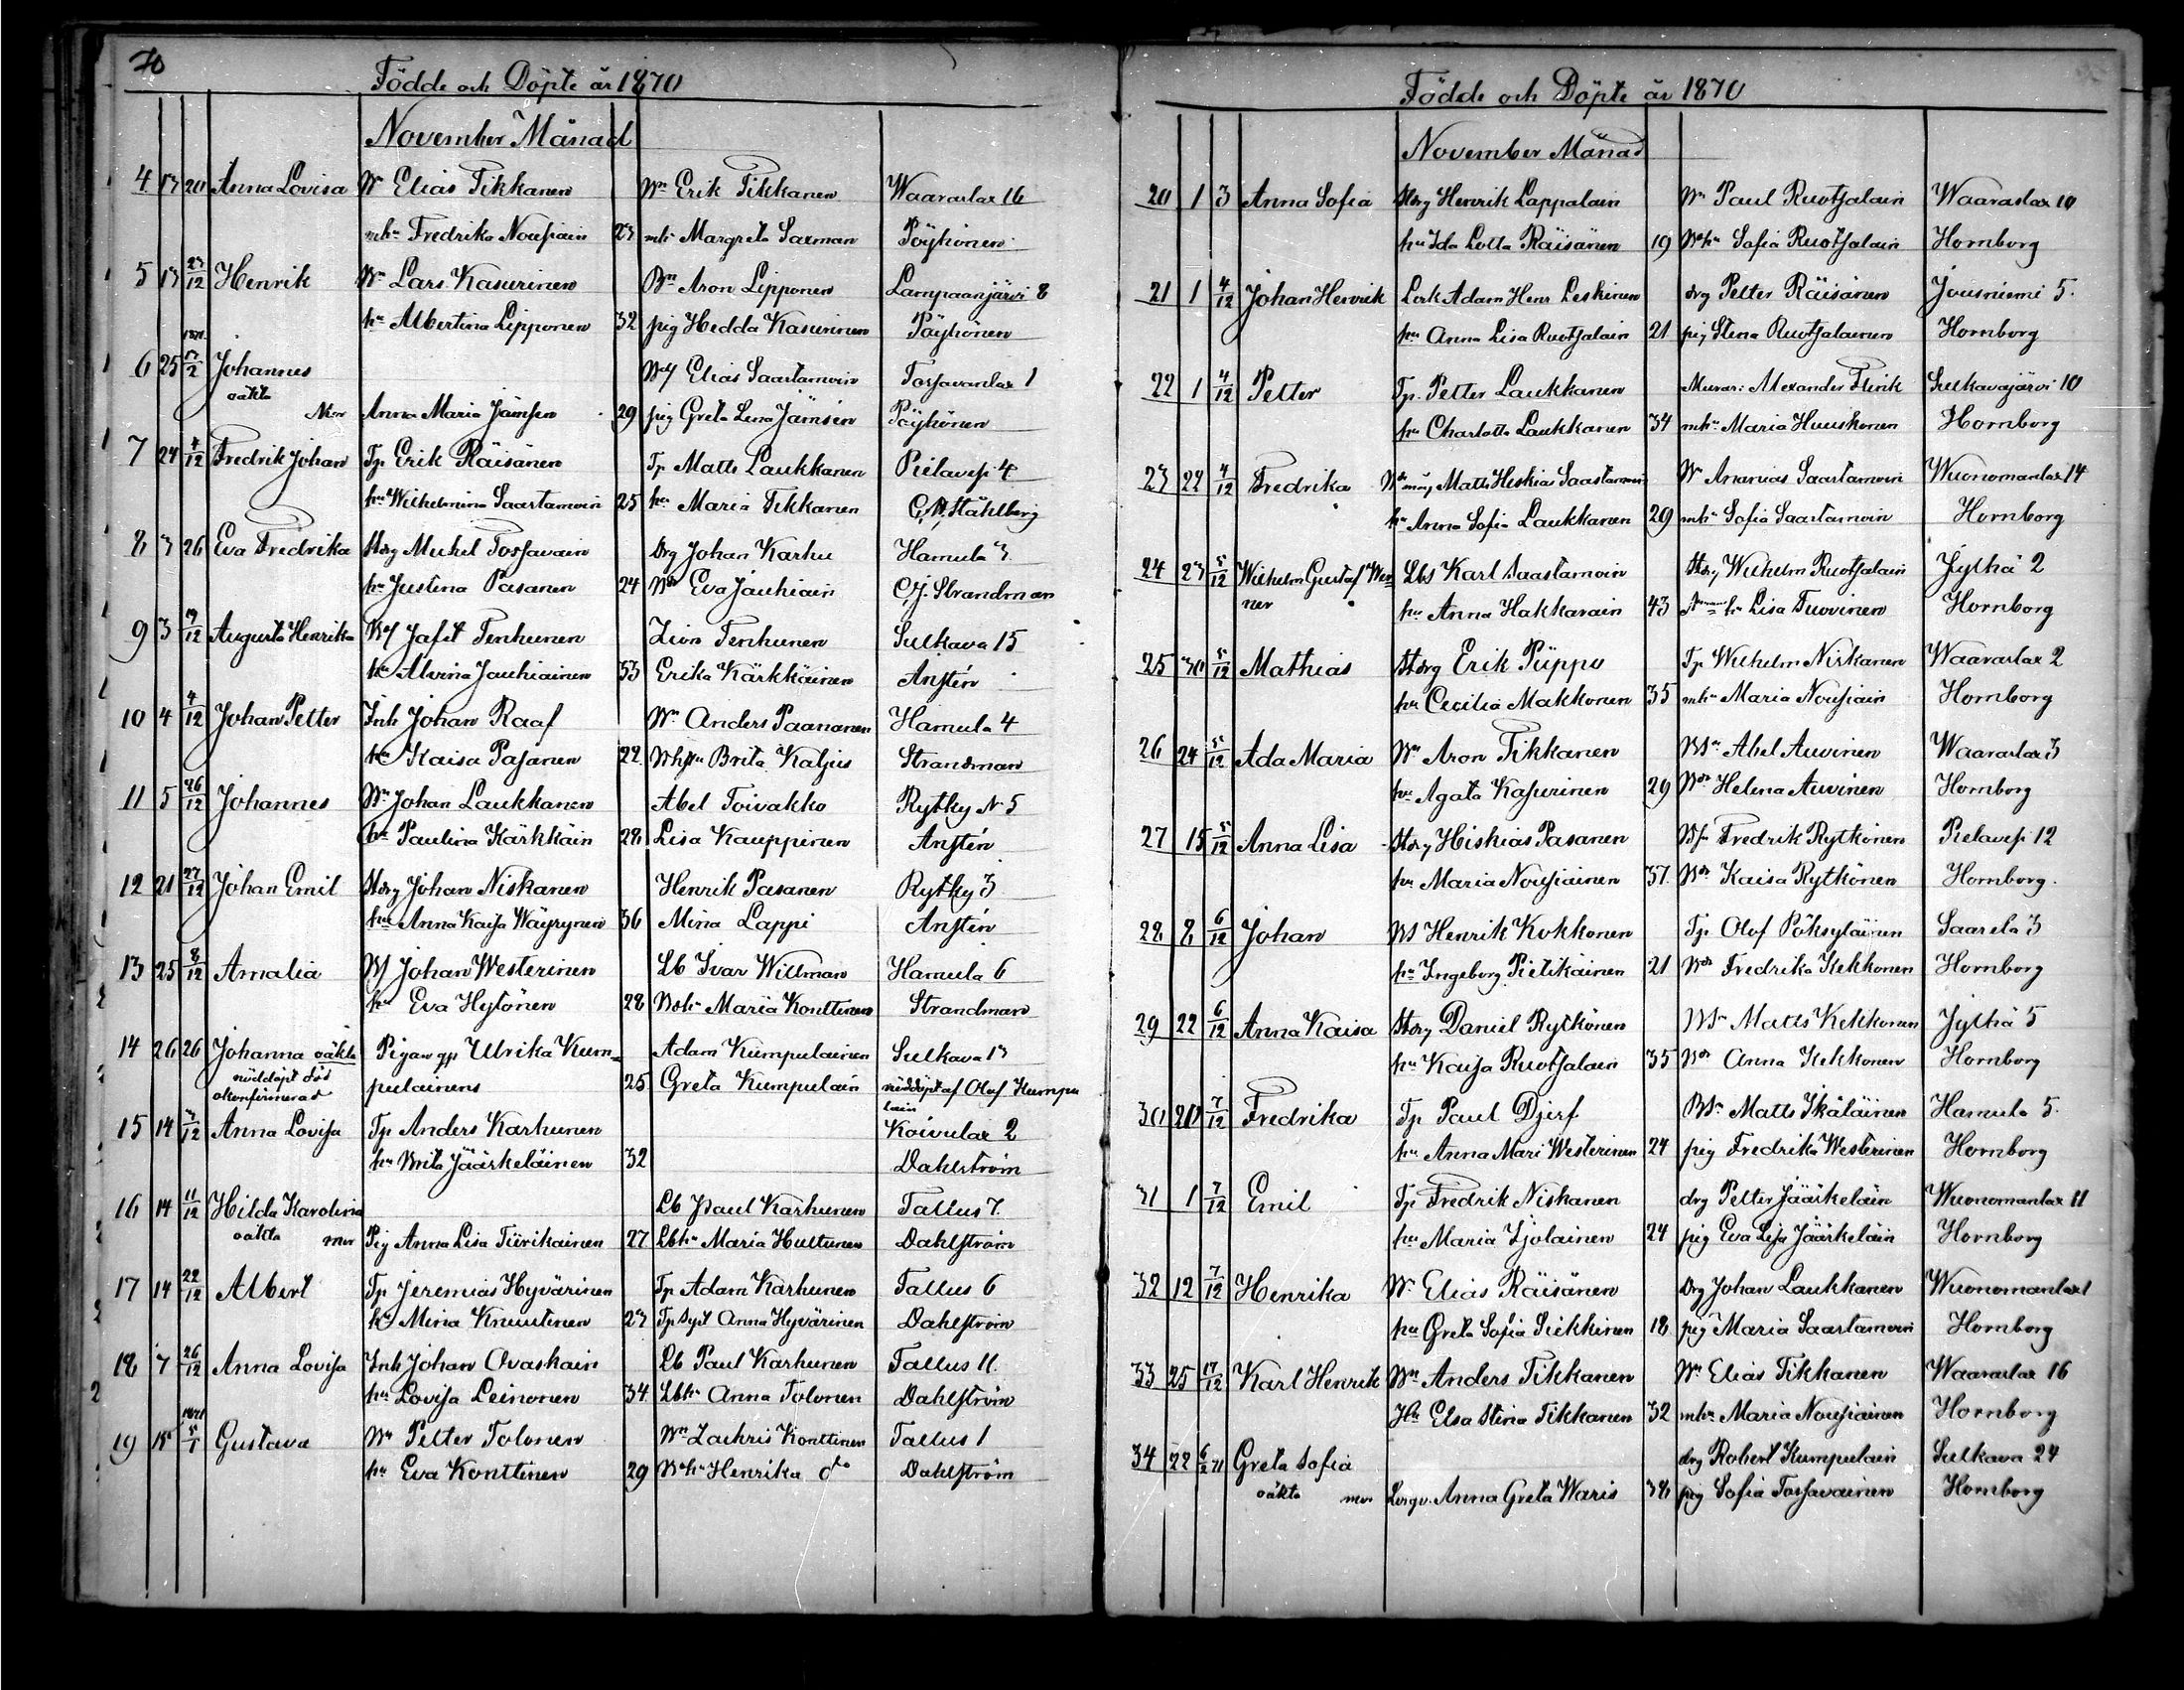 70
Födde och Döpte år 1870
November Månad
4 13 20 Anna Lovisa Wn Elias Tikkanen Wn Erik Tikkanen Waaraslax 16
mhu Fredrika Nousiain 23 mhu Margreta Saxman Pöyhönen
5 13 23/12 Henrik Wn Lars Kasurinen Bn Aron Lipponen Lampaanjärvi 8
hu Albertina Lipponen 32 pig Hedda Kasurinen Pöyhönen
1871
6 25 17/2 Johannes Elias Saastamoin Tossavanlax 1
oäkta
Anna Maria Jämsen 29 pig Greta Lena Jämsen Pöyhönen
7 24 4/12 Fredrik Johan Tp Erik Räisänen Tp Matts Laukkanen Pielavesi 4
hu Wilhelmina Saastamoin 25 hu Maria Tikkanen Ståhlberg
8 3 26 Eva Fredrika Michel Tossavain Drg Johan Karhu Hamula 3
hu Justina Pasanen 24 Eva Jauhiain C.J. Strandman
9 3 19/12 Augusta Henrika Jafet Tenhunen Zion Tenhunen Sulkava 15
hu Alvina Jauhiainen 33 Erika Kärkkäinen Anstén
10 4 4/12 Johan Petter Inh Johan Raaf Wn Anders Paananen Hamula 4
hu Kaisa Pasanen 22 Brita Kaljus Strandman
11 5 26/12 Johannes Wn Johan Laukkanen Abel Toivakko Rytky N 5
hu Paulina Kärkkäin 28 Lisa Kauppinen Anstén
12 21 27/12 Johan Emil Johan Niskanen Henrik Pasanen Rytky 3
hu Anna Kaisa Wäyrynen 36 Mina Lappi Anstén
13 25 8/12 Amalia Johan Westerinen Lb Ivar Willman Hamula 6
hu Eva Hytönen 28 Maria Konttinen Strandman
14 26 26 Johanna oäkta Pigan Ulrika Kum- Adam Kumpulainen Sulkava 13
nöddöpt
okonfirmerad pulainens 25 Greta Kumpulain nöddöpt af Olof Kumpu
lain
15 14 7/12 Anna Lovisa Tp Anders Karhunen Koivulax 2
hu Brita Jääskeläinen 32 Dahlström
16 14 11/12 Hilda Karolina Lb Paul Karhunen Tallus 7
oäkta mor Pig Anna Lisa Tiirikainen 27 Lbhu Maria Hultunen Dahlström
17 14 22/12 Albert Tp Jeremias Hyvärinen Tp Adam Karhunen Tallus 6
hu Mina Knuutinen 23 Tp Syst Anna Hyvärinen Dahlström
18 7 26/12 Anna Lovisa Inh Johan Ovaskain Lb Paul Karhunen Tallus 11
hu Lovisa Leinonen 34 Lbhu Anna Tolonen Dahlström
1871
19 18 5/1 Gustava Wn Petter Tolonen Wn Zachris Konttinen Tallus 1
hu Eva Konttinen 29 Henrika do Dahlström
Födde och Döpte år 1870
November Månad
20 1 3 Anna Sofia Henrik Lappalain Wn Paul Ruotsalain Waaraslax 10
hu Ida Lotta Räisänen 19 Sofia Ruotsalain Hornborg
21 1 4/12 Johan Henrik Adam Henr Leskinen drg Petter Räisänen Jousniemi 5
hu Anna Lisa Ruotsalain 21 pig Stena Ruotsalainen Hornborg
22 1 4/12 Petter Tp. Petter Laukkanen Alexander Flink Sulkavajärvi 10
hu Charlotta Laukkanen 34 mhu Maria Huuskonen Hornborg
23 22 4/12 Fredrika Matts Heskias Saastamoin Wn Ananias Saastamoin Wuonomanlax 14
hu Anna Sofia Laukkanen 29 mhu Sofia Saastamoin Hornborg
24 23 5/12 Wilhelm Gustaf Wer- Lbs Karl Saastamoin Wilhelm Ruotsalain Jylhä 2
ner hu Anna Hakkarain 43 hu Lisa Tuovinen Hornborg
25 30 5/12 Mathias Erik Piippo Tp Wilhelm Niskanen Waaraslax 2
hu Cecilia Makkonen 35 mhu Maria Nousiain Hornborg
26 24 5/12 Ada Maria Wn Aron Tikkanen Abel Auvinen Waaraslax 3
hu Agata Kasurinen 29 Helena Auvinen Hornborg
27 15 5/12 Anna Lisa Hiskias Pasanen Fredrik Rytkönen Pielavesi 12
hu Maria Nousiainen 37 Kaisa Rytkönen Hornborg
28 8 6/12 Johan Henrik Kokkonen Tp Olof Pöksyläinen Saarela 3
hu Ingeborg Pietikäinen 21 Fredrika Kekkonen Hornborg
29 22 6/12 Anna Kaisa Daniel Rytkönen Matts Kekkonen Jylhä 5
hu Kaisa Ruotsalain 35 Anna Kekkonen Hornborg
30 20 7/12 Fredrika Tp Paul Djerf Matts Ikäläinen Hamula 5
hu Anna Mari Westerinen 24 pig Fredrika Westerinen Hornborg
31 1 7/12 Emil Tp Fredrik Niskanen drg Petter Jääskeläin Wuonomanlax 11
hu Maria Ijolainen 24 pig Eva Lisa Jääskeläin Hornborg
32 12 7/12 Henrika Wn Elias Räisänen Drg Johan Laukkanen Wuonomanlax 1
hu Greta Sofia Siekkinen 18 pig Maria Saastamoin Hornborg
33 25 17/12 Karl Henrik Wn Anders Tikkanen Wn Elias Tikkanen Waaraslax 16
Hu Elsa Stina Tikkanen 32 mhu Maria Nousiainen Hornborg
34 22 6/2 71 Greta Sofia drg Robert Kumpulain Sulkava 24
oäkta mor Anna Greta Waris 38 pig Sofia Tossavainen Hornborg